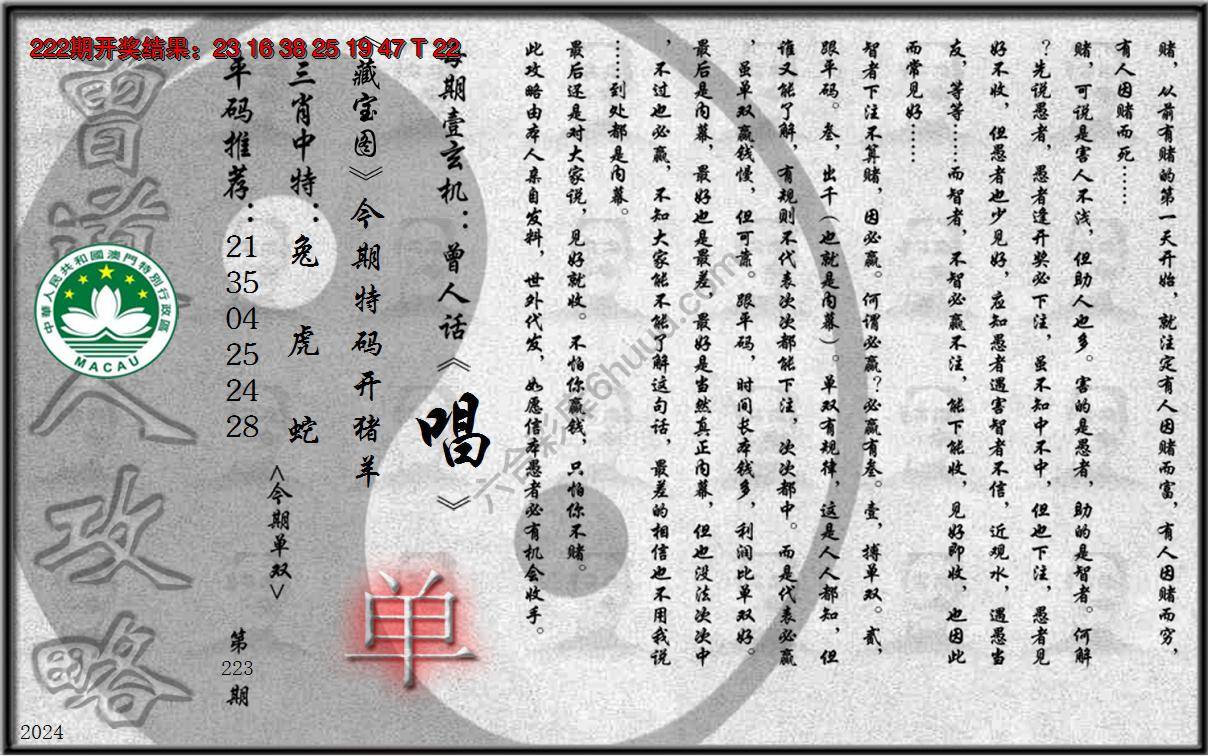 222期开奖结果：23 16 38 25 19 47 T 22
赌，从前有赌的第一天开始，就注定有人因赌而富，有人因赌而穷，
有人因赌而死……
赌，可说是害人不浅，但助人也多。害的是愚者，助的是智者。何解
？先说愚者，愚者逢开奖必下注，虽不知中不中，但也下注，愚者见
好不收，但愚者也少见好，应知愚者遇害智者不信，近观水，遇愚当
友，等等……而智者，不智必赢不注，能下能收，见好即收，也因此
而常见好……
智者下注不算赌，因必赢。何谓必赢？必赢有叁。壹，搏单双。贰，
跟平码。叁，出千（也就是内幕）。单双有规律，这是人人都知，但
谁又能了解，有规则不代表次次都能下注，次次都中。而是代表必赢
，虽单双赢钱慢，但可靠。跟平码，时间长本钱多，利润比单双好。
最后是内幕，最好也是最差，最好是当然真正内幕，但也没法次次中
，不过也必赢，不知大家能不能了解这句话，最差的相信也不用我说
……到处都是内幕。
最后还是对大家说，见好就收。不怕你赢钱，只怕你不赌。
此攻略由本人亲自发料，世外代发，如愿信本愚者必有机会收手。
每期壹玄机：曾人话《唱》
《藏宝图》今期特码开猪羊
三肖中特：兔 虎 蛇
平码推荐：21 35 04 25 24 28
<今期单双>
单
第223期
曾道人攻略
中華人民共和國澳門特別行政區
MACAU
2024